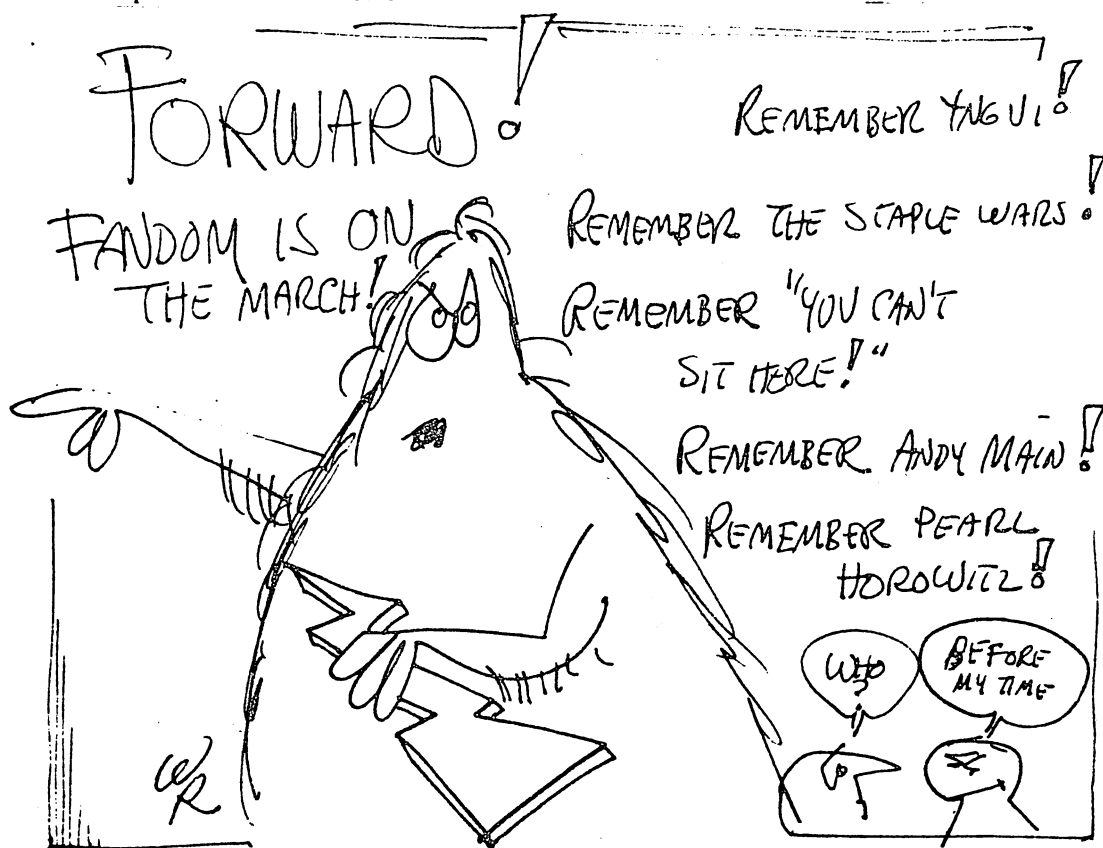 FORWARD!
FANDOM IS ON
THE MARCH!
REMEMBER YNGVI!
REMEMBER THE STAPLE WARS!
REMEMBER "YOU CAN'T
SIT HERE!"
REMEMBER ANDY MAIN!
REMEMBER PEARL
HOROWITZ!
WHO
?
BEFORE
MY TIME
WR